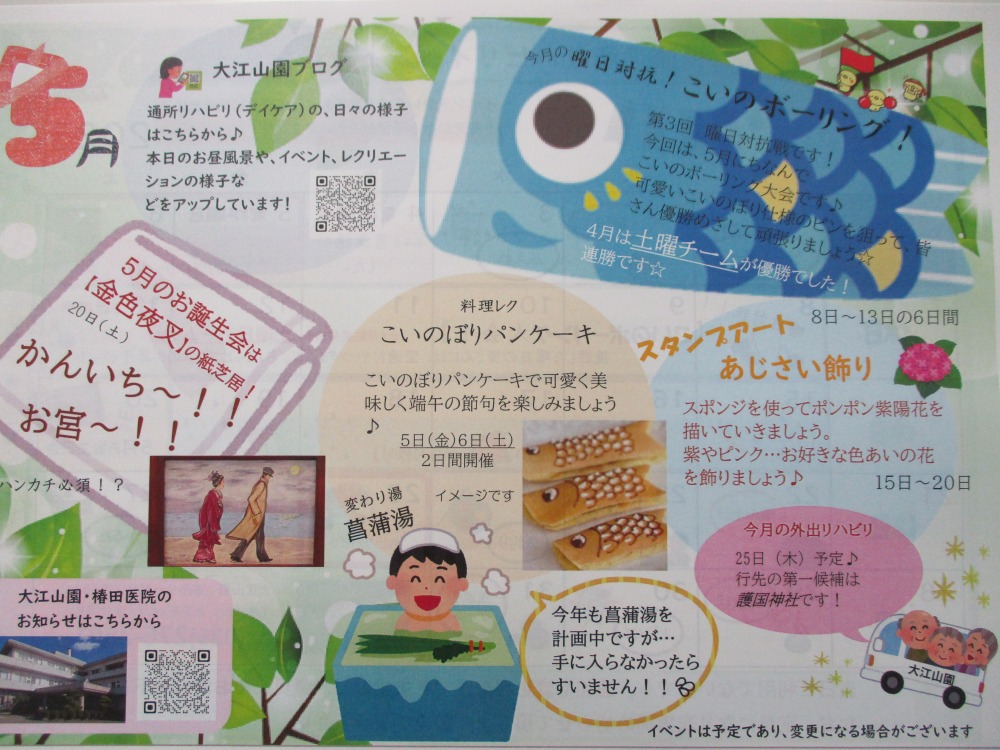 5月
大江山園ブログ
通所リハビリ(デイケア)の、日々の様子
はこちらから♪
本日のお昼風景や、イベント、レクリエー
ションの様子な
どをアップしています!
今月の曜日対抗!こいのボーリング!
第3回 曜日対抗戦です!
今回は、5月にちなんで
こいのボーリング大会です♪
可愛いこいのぼり仕様のピンを狙って、皆
さん優勝めざして頑張りましょう☆
4月は土曜チームが優勝でした!
連勝です☆
8日~13日の6日間
5月のお誕生会は
【金色夜叉】の紙芝居!
20日(土)
かんいち~!!
お宮~!!
ハンカチ必須!?
料理レク
こいのぼりパンケーキ
こいのぼりパンケーキで可愛く美
味しく端午の節句を楽しみましょう
♪
5日(金)6日(土)
2日間開催
イメージです
スタンプアート
あじさい飾り
スポンジを使ってポンポン紫陽花を
描いていきましょう。
紫やピンク…お好きな色あいの花
を飾りましょう♪
15日~20日
変わり湯
菖蒲湯
今年も菖蒲湯を
計画中ですが…
手に入らなかったら
すいません!!
今月の外出リハビリ
25日(木)予定♪
行先の第一候補は
護国神社です!
大江山園
大江山園・椿田医院の
お知らせはこちらから
イベントは予定であり、変更になる場合がございます